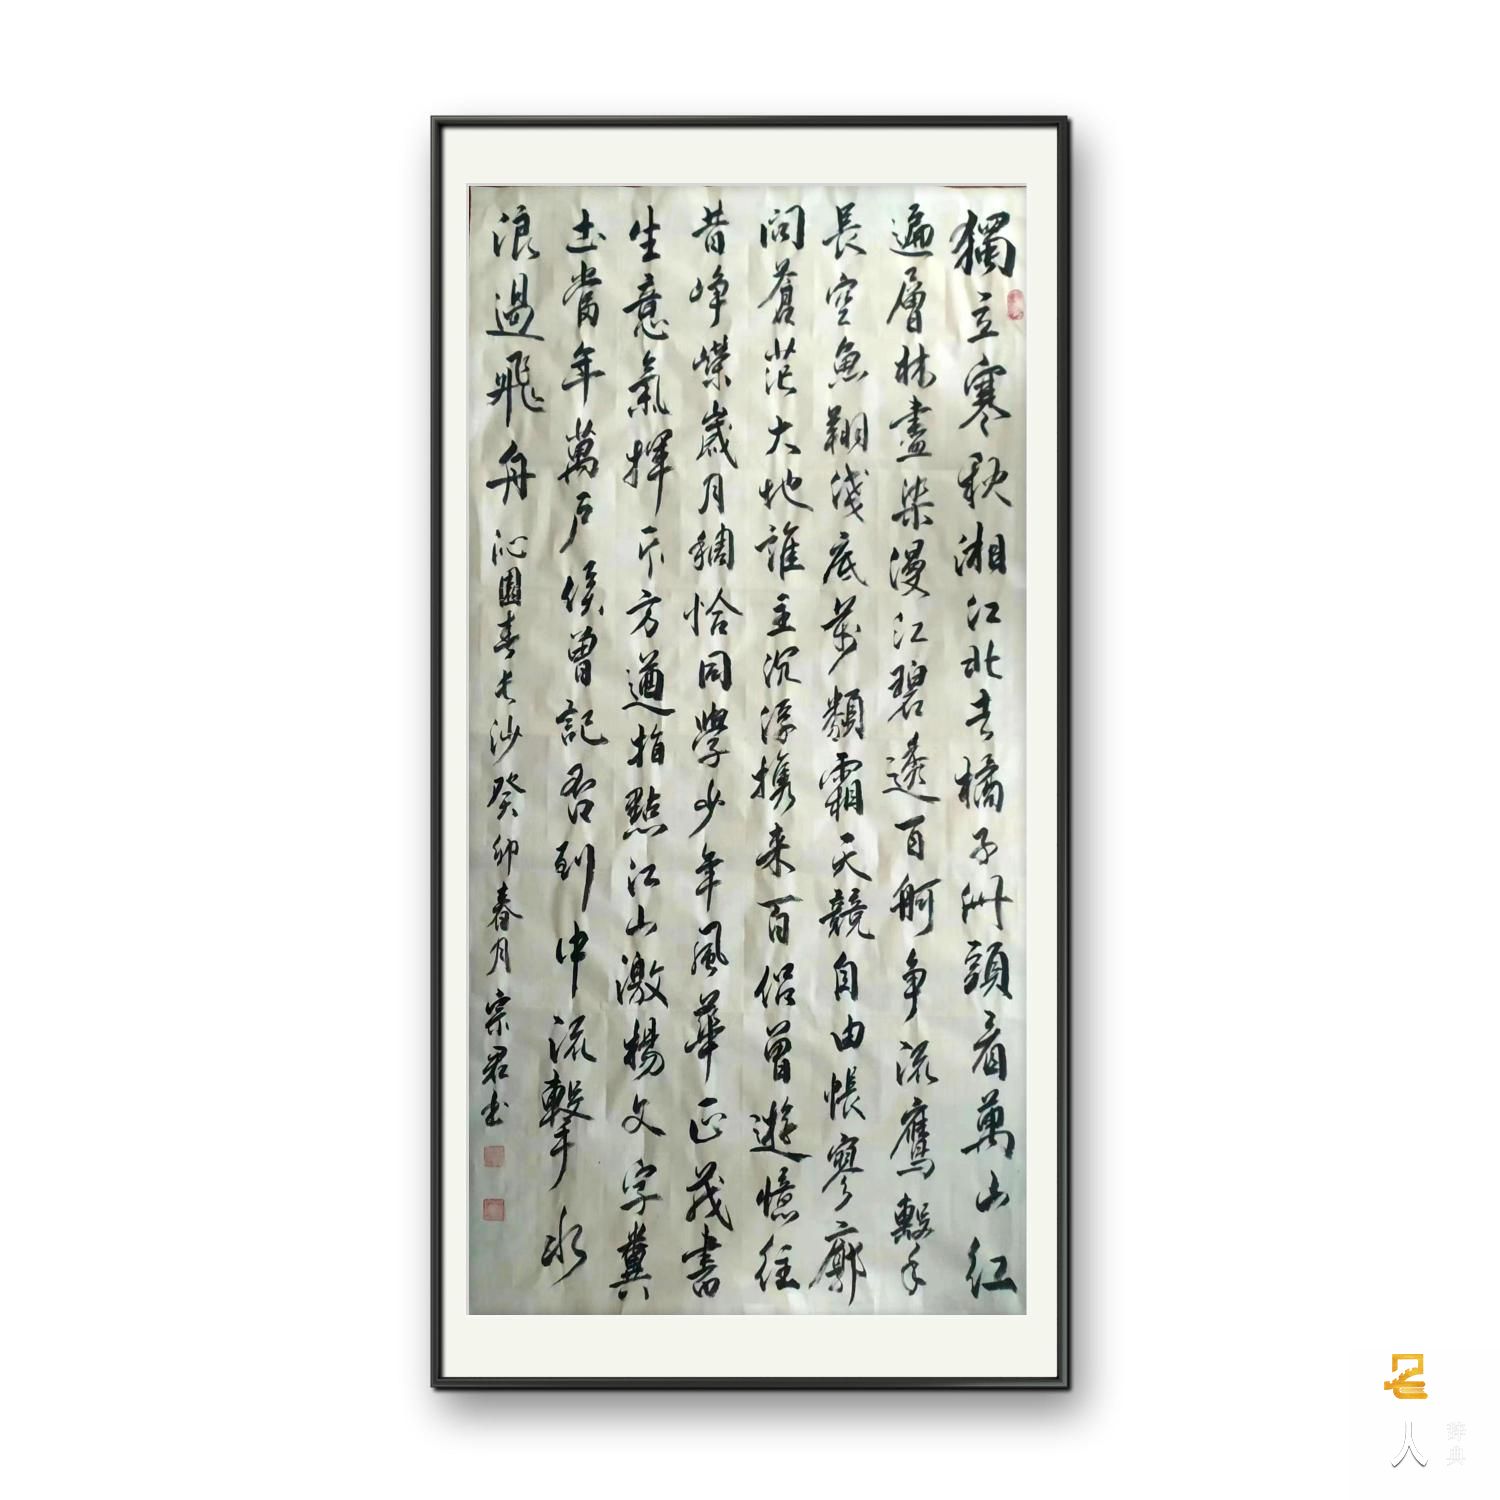 獨立寒秋湘江北去橘子洲頭看萬山红
遍層林盡染漫江碧透百舸争流鷹擊
長空魚翔淺底萬類霜天競自由悵寥廓
問蒼茫大地誰主沉浮携来百侣曾遊憶往
昔崢嶸歲月稠恰同學少年風華正茂書
生意氣揮斥方遒指點江山激揚文字糞
土當年萬户侯曾記否到中流擊水
浪遏飛舟 沁園春長沙癸卯春月宗君书
名人辞典